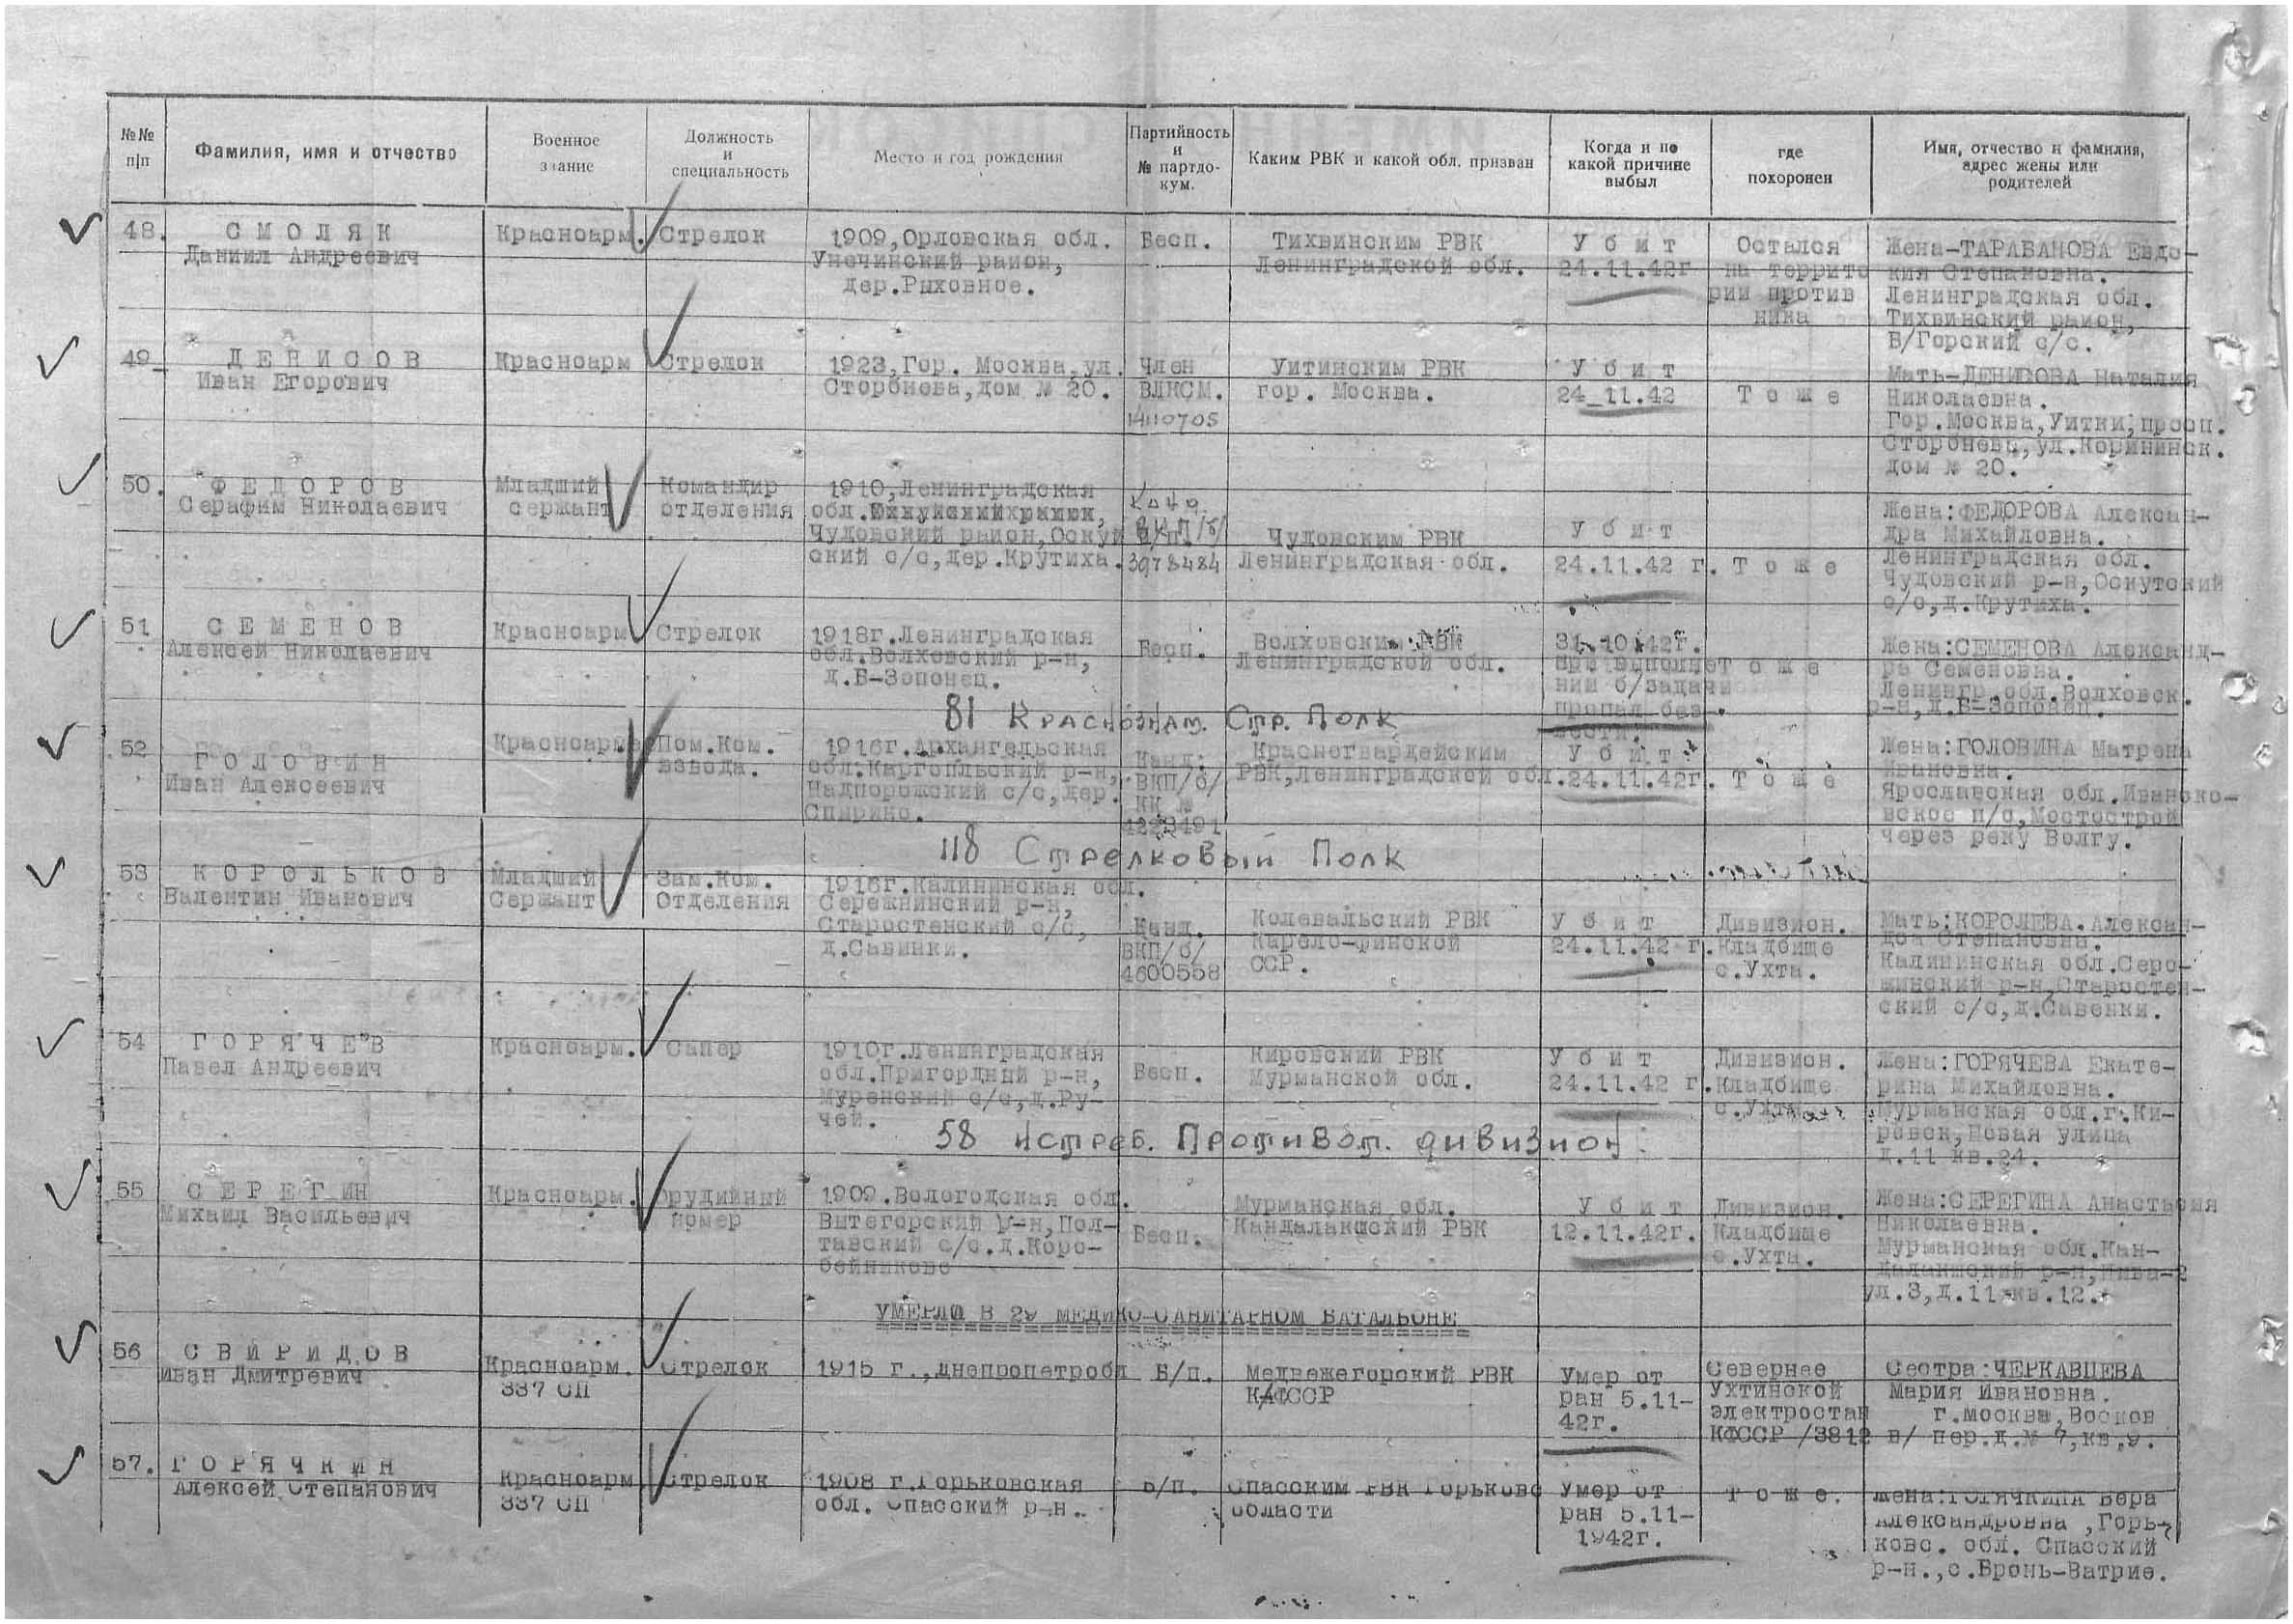 №№ п/п
Фамилия, имя и отчество
Военное звание
Должность и специальность
Место и год рождения
Партийность и № партдокум.
Каким РВК и какой обл. призван
Когда и по какой причине выбыл
где похоронен
Имя, отчество и фамилия, адрес жены или родителей
48. СМОЛЯК Красноарм. Стрелок 1909, Орловская обл. Бесп. Тихвинским РВК Убит Остался Жена-ТАРАБАНОВА Евдо-
Даниил Андреевич Унечинский район, Ленинградской обл. 24.11.42г на террито кия Степановна.
дер. Рыховное. рии против Ленинградская обл.
ника Тихвинский район,
Б/Горский с/с.
49 ДЕНИСОВ Красноарм Стрелок 1923, Гор. Москва, ул. Член Уитинским РВК Убит Мать-ДЕНИСОВА Наталия
Иван Егорович дом № 20. ВЛКСМ. гор. Москва. 24_11.42 Тоже Николаевна.
14110705 Гор. Москва, Уитки, просп.
дом № 20.
50. ФЕДОРОВ Младший Командир 1910, Ленинградская Канд. Жена: ФЕДОРОВА Алексан-
Серафим Николаевич сержант отделения обл. ВКП/б/ Убит дра Михайловна.
Чудовский район, Оскуй Чудовским РВК Ленинградская обл.
ский с/с, дер. Крутиха. 3978484 Ленинградская обл. 24.11.42 г. Тоже Чудовский р-н, Оскутский
с/с, д. Крутиха.
51 СЕМЕНОВ Красноарм Стрелок 1918г. Ленинградская Бесп. Волховским РВК 31.10.42г. Жена: СЕМЕНОВА Александ-
Алексей Николаевич обл. Волховский р-н, Ленинградской обл. при выполне Тоже ра Семеновна.
д. Б-Зопонец. нии б/задачи Ленингр. обл. Волховск.
пропал без р-н, д. Б-Зопонец.
вести.
81 Краснознам. Стр. Полк
52 ГОЛОВИН Красноарме Пом. Ком. 1916г. Архангельская Канд. Красногвардейским Убит Жена: ГОЛОВИНА Матрена
Иван Алексеевич взвода. обл. Каргопльский р-н, ВКП/б/ РВК, Ленинградской обл. 24.11.42г. Тоже Ивановна.
Надпорожский с/с, дер. КК № Ярославская обл. Иванько-
Спирино. 4223491 вское п/о, Мостострой
через реку Волгу.
118 Стрелковый Полк
53 КОРОЛЬКОВ Младший Зам. Ком. 1916г. Калининская обл.
Валентин Иванович Сержант Отделения Сережнинский р-н,
Старостенский с/с, Канд. Колевальский РВК Убит Дивизион. Мать: КОРОЛЕВА. Алексан-
д. Савинки. ВКП/б/ Карело-финской 24.11.42 г. Кладбище дра Степановна.
4600558 ССР. с. Ухта. Калининская обл. Серо-
жинский р-н, Старостен-
ский с/с, д. Савенки.
54 ГОРЯЧЕВ Красноарм. Сапер 1910г. Ленинградская Бесп. Кировский РВК Убит Дивизион. Жена: ГОРЯЧЕВА Екате-
Павел Андреевич обл. Пригордный р-н, Мурманской обл. 24.11.42 г. Кладбище рина Михайловна.
Муренский с/с, д. Ру- с. Ухта Мурманская обл. г. Ки-
чей. ровск, Новая улица
д. 11 кв. 24.
58 истреб. Противот. дивизион
55 СЕРЕГИН Красноарм. Орудийный 1909. Вологодская обл. Мурманская обл. Убит Дивизион. Жена: СЕРЕГИНА Анастасия
Михаил Васильевич номер Вытегорский р-н, Пол- Бесп. Кандалакшский РВК 12.11.42г. Кладбище Николаевна.
тавский с/с. д. Коро- с. Ухта. Мурманская обл. Кан-
бейниково далакшский р-н, Нива-2
ул. 3, д. 11 кв. 12.
УМЕРЛИ В 29 МЕДИКО-САНИТАРНОМ БАТАЛЬОНЕ
56 СВИРИДОВ Красноарм. Стрелок 1915 г., Днепропетробл Б/п. Медвежегорский РВК Умер от Севернее Сестра: ЧЕРКАВЦЕВА
Иван Дмитревич 337 СП КФССР ран 5.11- Ухтинской Мария Ивановна.
42г. электростан г. Москва, Восков
КФССР /3812 в/ пер. д. № 7, кв. 9.
57. ГОРЯЧКИН Красноарм Стрелок 1908 г. Горьковская Б/п. Спасским РВК Горьково Умер от Тоже. Жена: ГОРЯЧКИНА Вера
Алексей Степанович 337 СП обл. Спасский р-н. области ран 5.11- Александровна, Горь-
1942г. ковс. обл. Спасский
р-н., с. Бронь-Ватрие.